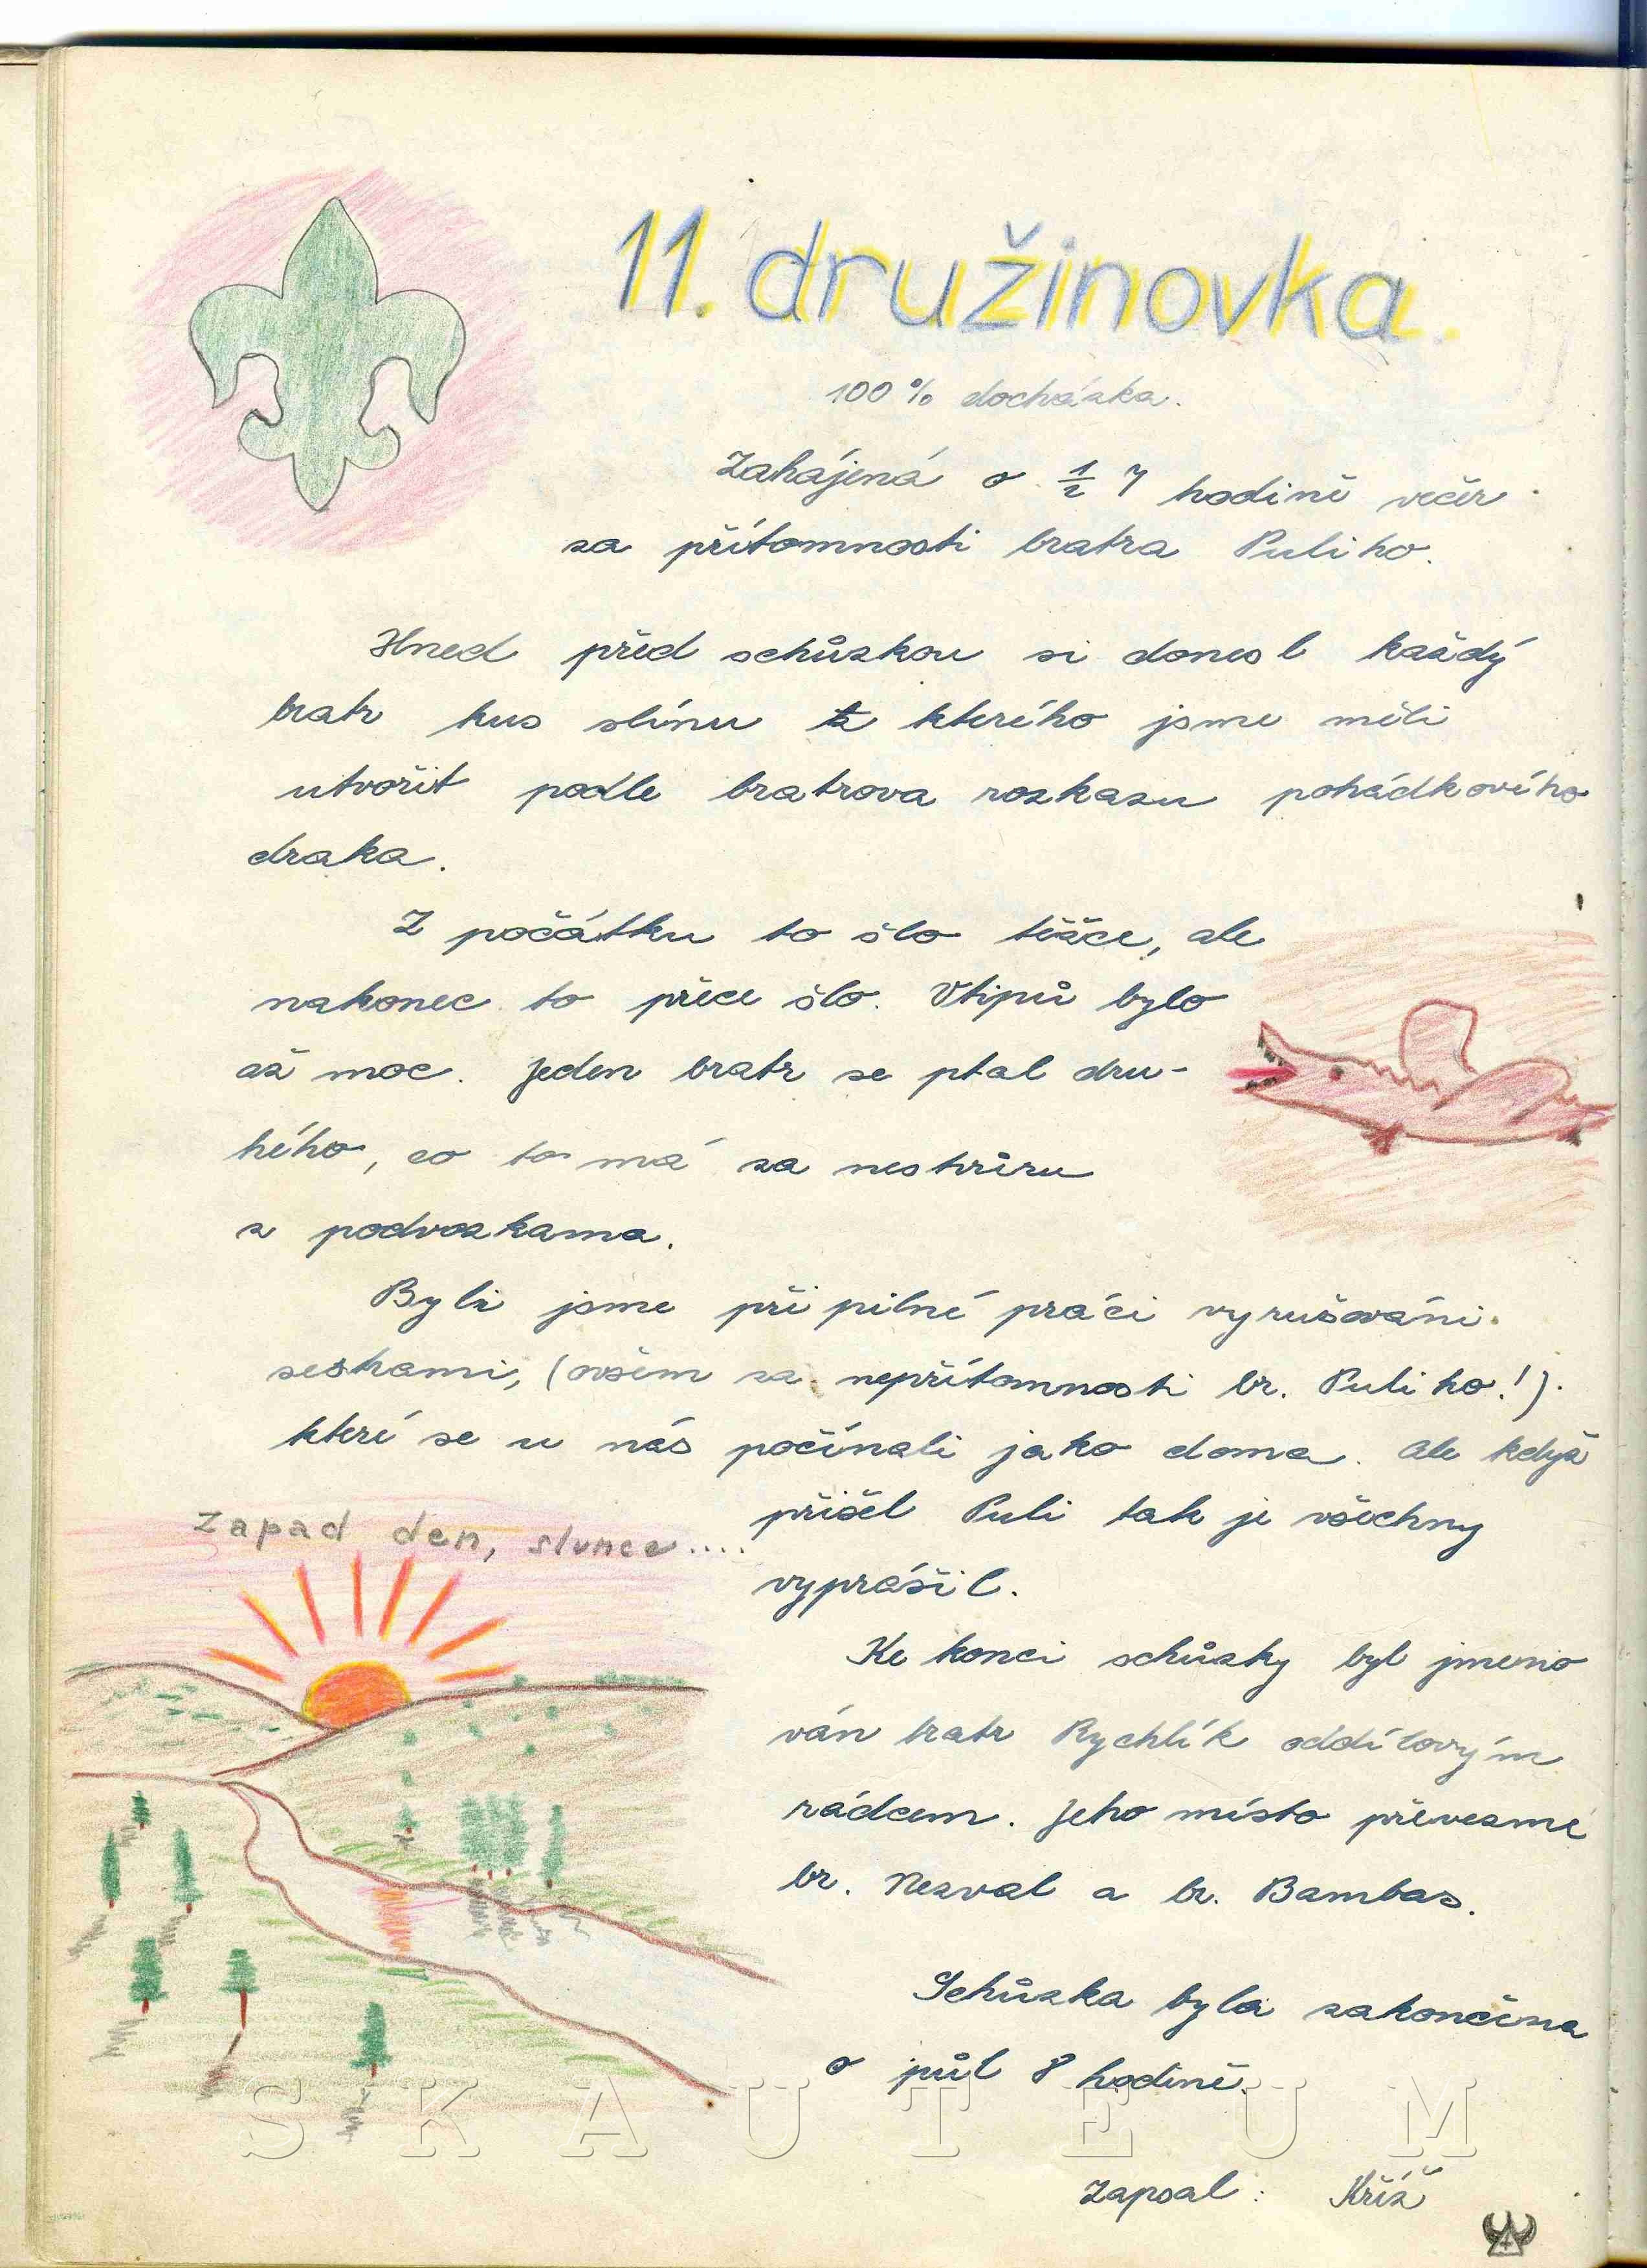 11. družinovka.
100% docházka.
Zahájená o 1/2 7 hodině večer
za přítomnosti bratra Puliho.
Hned před schůzkou si donesl každý
bratr kus slínu z kterého jsme měli
utvořit podle bratrova rozkazu pohádkového
draka.
Z počátku to šlo těžce, ale
nakonec to přece šlo. Vtipů bylo
až moc. Jeden bratr se ptal dru-
hého, co to má za nestvůru
z podvozkama.
Byli jsme při pilné práci vyrušováni
sestrami, (ovšem za nepřítomnosti br. Puliho!).
které se u nás počínali jako doma. Ale když
přišel Puli tak je všechny
vyprášil.
Zapad den, slunce....
Ke konci schůzky byl jmeno
ván bratr Rychlík oddílovým
rádcem. Jeho místo převezme
br. Nezval a br. Bambas.
Schůzka byla zakončena
o půl 8 hodině.
SKAUTEUM
Zapsal: Kříž